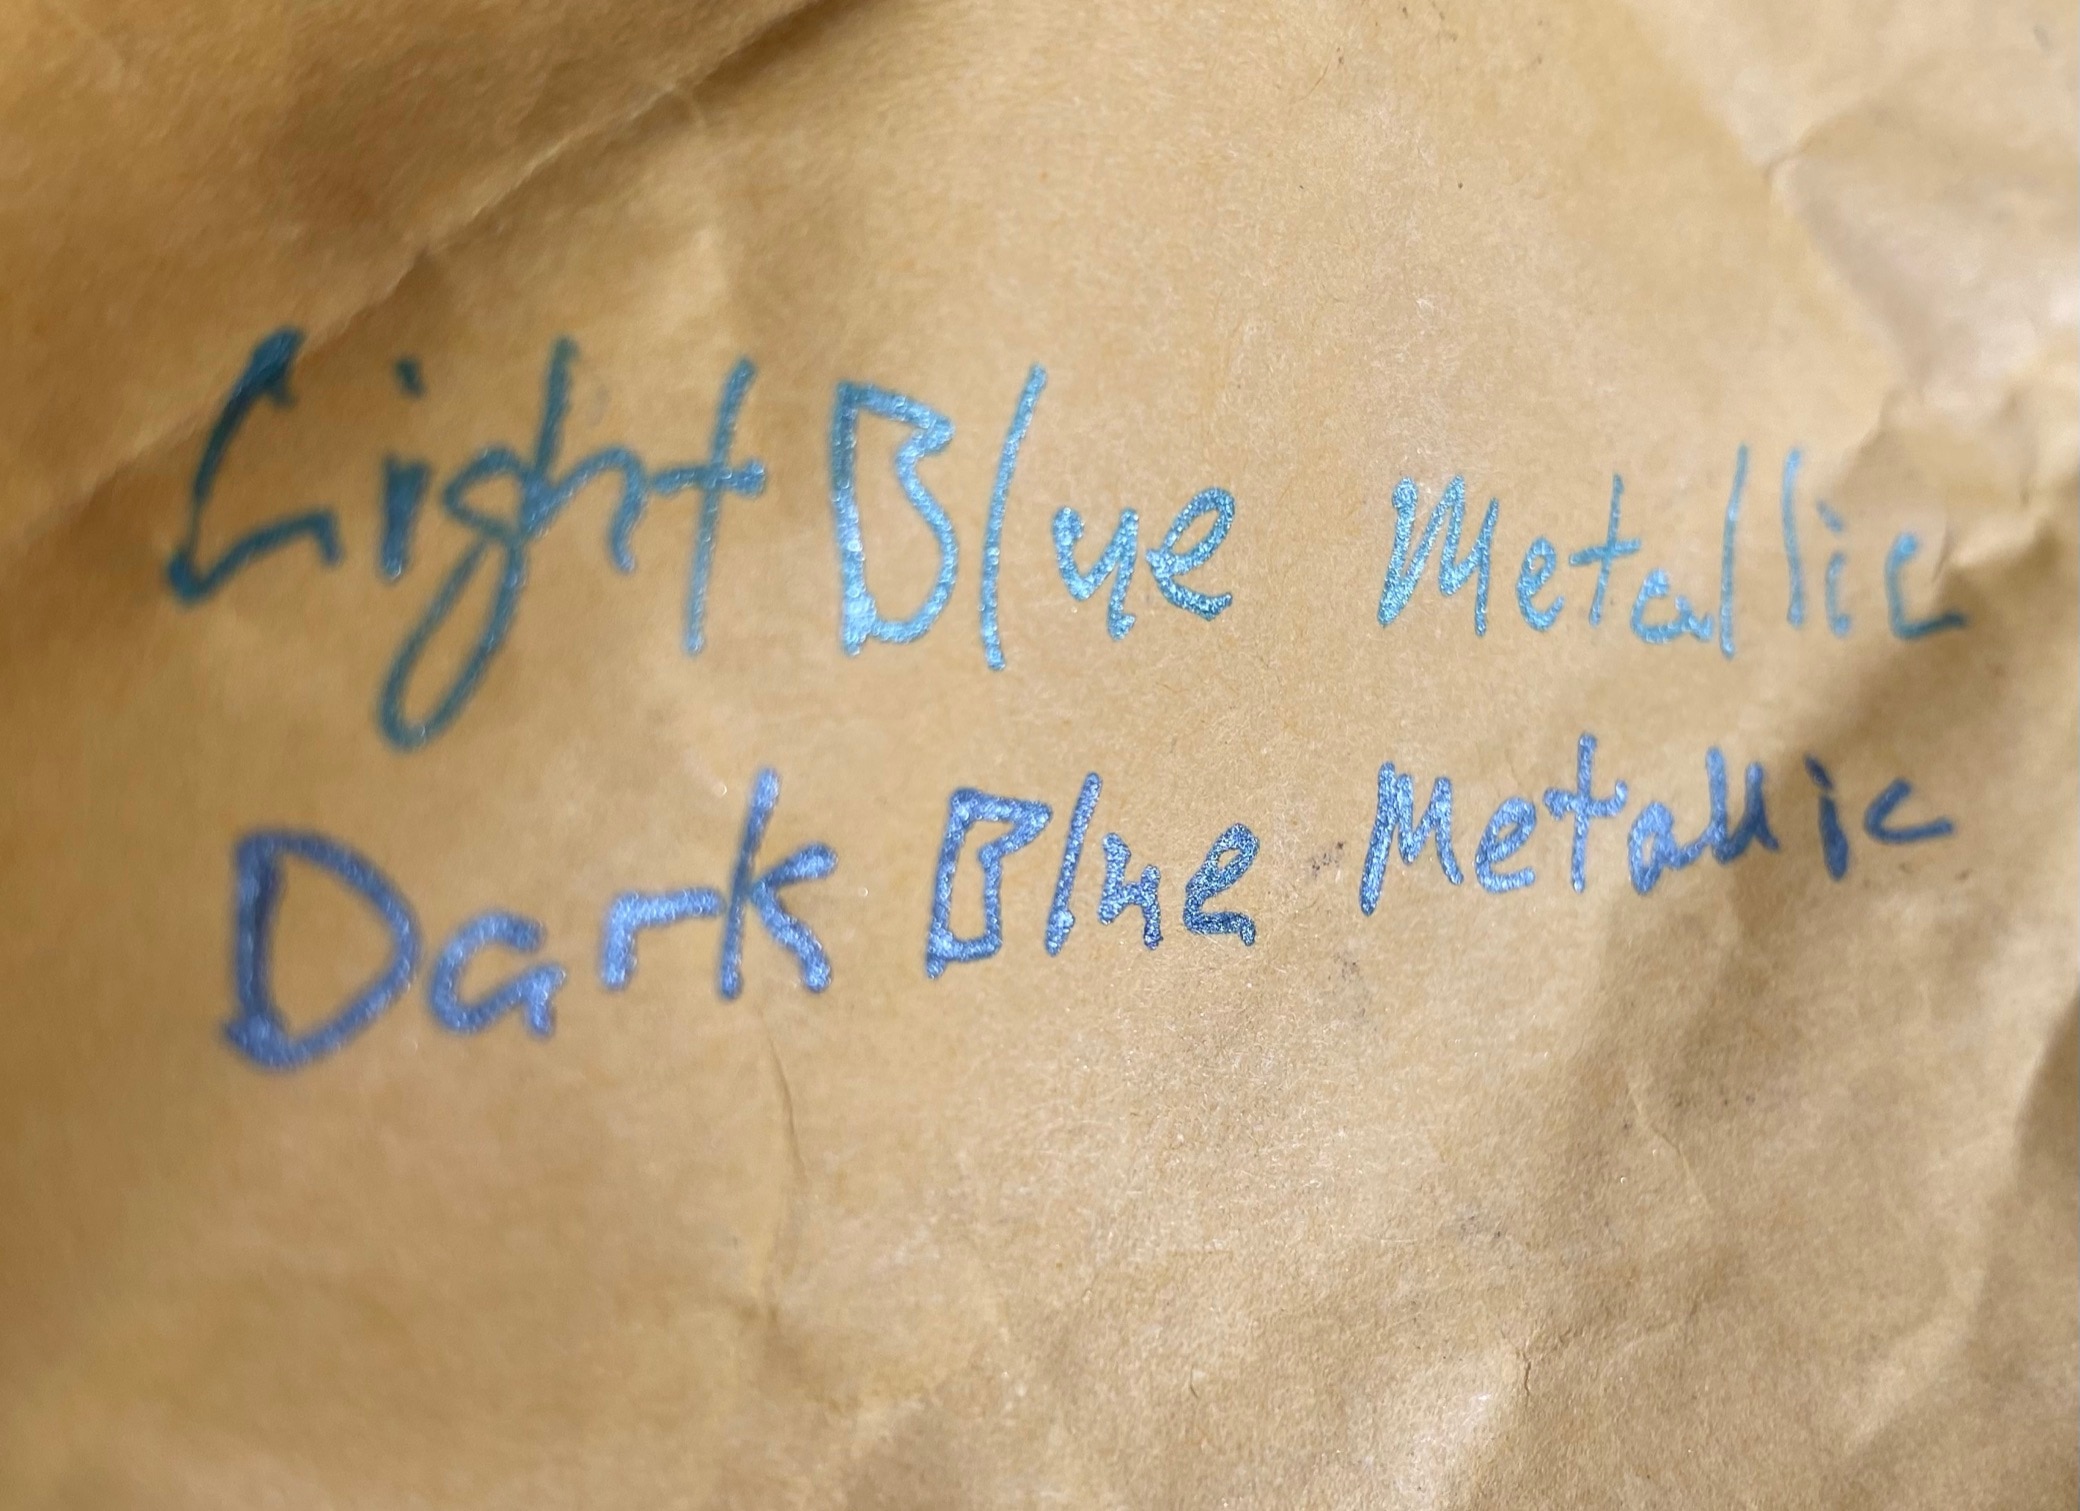 Light Blue Metallic
Dark Blue Metallic